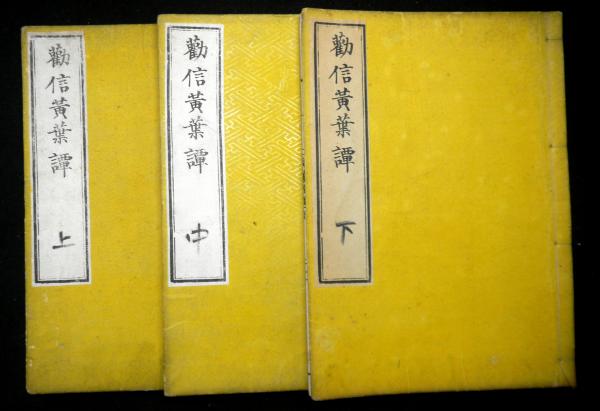 勸信黃葉譚
上
勸信黃葉譚
中
勸信黃葉譚
下